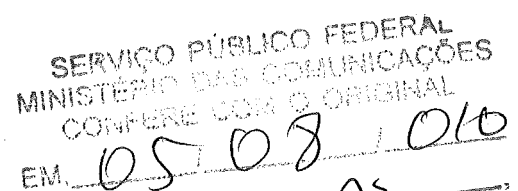 SERVIÇO PÚBLICO FEDERAL
MINISTÉRIO DAS COMUNICAÇÕES
CONFERE COM O ORIGINAL
EM, 05 / 08 / 010